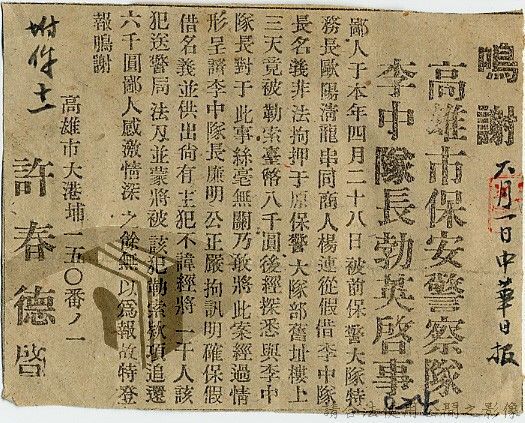 鳴謝
六月一日中華日报
高雄市保安警察隊
李中隊長勃英啓事
鄙人于本年四月二十八日被前保警大隊特
務長歐陽淸龍串同商人楊連從假借李中隊
長名義非法拘押于原保警大隊部舊址樓上
三天竟被勒索臺幣八千圓後經探悉與李中
隊長對于此事絲毫無關乃敢將此案經過情
形呈請李中隊長廉明公正嚴拘訊明確保假
借名義並供出尙有主犯不諱經將一干人該
犯送警局法刄並蒙將被該犯勒索欵項追還
六千圓鄙人感激情深之餘無以爲報故特登
報鳴謝
高雄市大港埔一五〇番ノ一
許春德啓
附件十一
請合法使用公開之影像